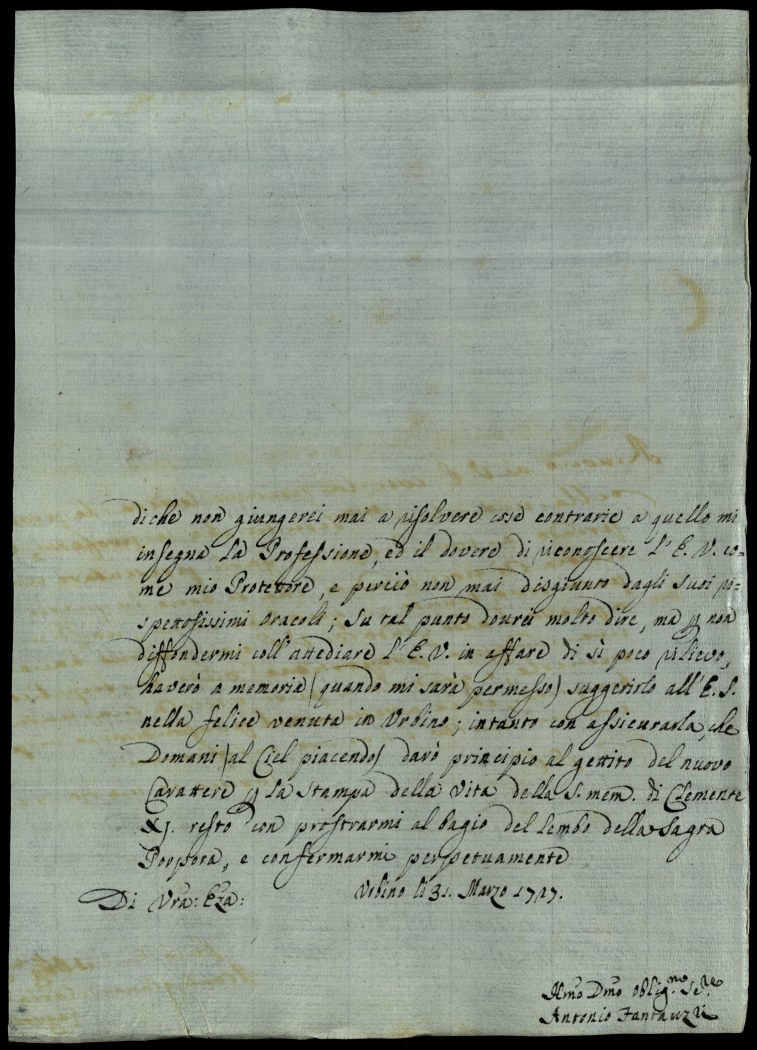 di che non giungerei mai a risolvere cose contrarie a quello mi
insegna la Professione, ed il dovere di riconoscere l'E. V. co-
me mio Protettore, e perciò non mai disgiunto dagli suoi ri-
spettosissimi oracoli; su tal punto dovrei molto dire, ma p non
diffondermi coll'attediare l'E. V. in affare di sì poco rilievo,
haverò a memoria (quando mi sarà permesso) suggerirlo all'E. S.
nella felice venuta in Urbino; intanto con assicurarla, che
Domani (al Ciel piacendo) darò principio al gettito del nuovo
Carattere p la stampa della Vita della S. mem. di Clemente
XI. resto con prostrarmi al bagio del lembo della Sagra
Porpora, e confermarmi perpetuamente
Di Vra: Eza: Urbino li 31. Marzo 1727.
Hmo Dmo oblig.mo Se.re
Antonio Fantauzzi